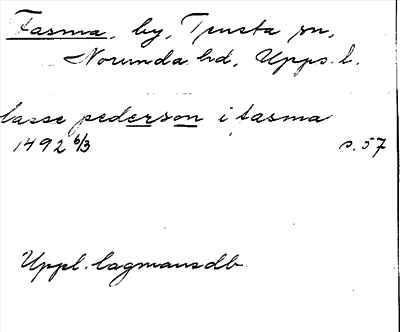 Fasma, by, Tensta sn,
Norunda hd, Upps. l.
lasse pederson i fasma
1492 6/3 s. 57
Uppl. lagmansdb.